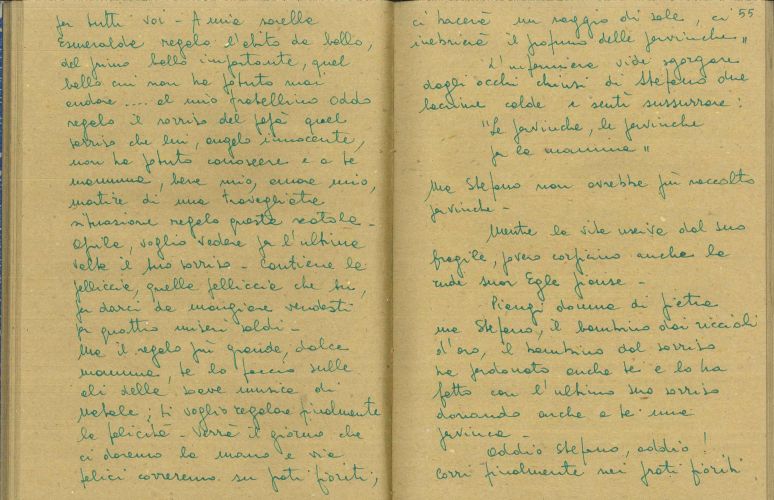 per tutti voi - A mia sorella
Esmeralda regalo l'abito da ballo,
del primo ballo importante, quel
ballo cui non ha potuto mai
andare .... al mio fratellino Oddo
regalo il sorriso del papà quel
sorriso che lui, angelo innocente,
non ha potuto conoscere e a te
mamma, bene mio, amore mio,
martire di una travagliata
situazione regalo questa scatola -
Aprila, voglio vedere per l'ultima
volta il tuo sorriso - Contiene la
pelliccia, quella pelliccia che tu,
per darci da mangiare vendesti
per quattro miseri soldi -
Ma il regalo più grande, dolce
mamma, te lo faccio sulle
ali della soave musica di
Natale; ti voglio regalare finalmente
la felicità - Verrà il giorno che
ci daremo la mano e via
felici correremo su prati fioriti,
55
ci bacerà un raggio di sole, ci
inebrierà il profumo delle pervinche"
L'infermiera vide sgorgare
dagli occhi chiusi di Stefano due
lacrime calde e sentì sussurrare:
"Le pervinche, le pervinche
per la mamma"
Ma Stefano non avrebbe più raccolto
pervinche -
Mentre la vita usciva dal suo
fragile, povero corpicino anche la
rude suor Egle pianse -
Piangi donna di pietra
ma Stefano, il bambino dai riccioli
d'oro, il bambino dal sorriso
ha perdonato anche te e lo ha
fatto con l'ultimo suo sorriso
donando anche a te una
pervinca -
Addio Stefano, addio!
Corri finalmente nei prati fioriti